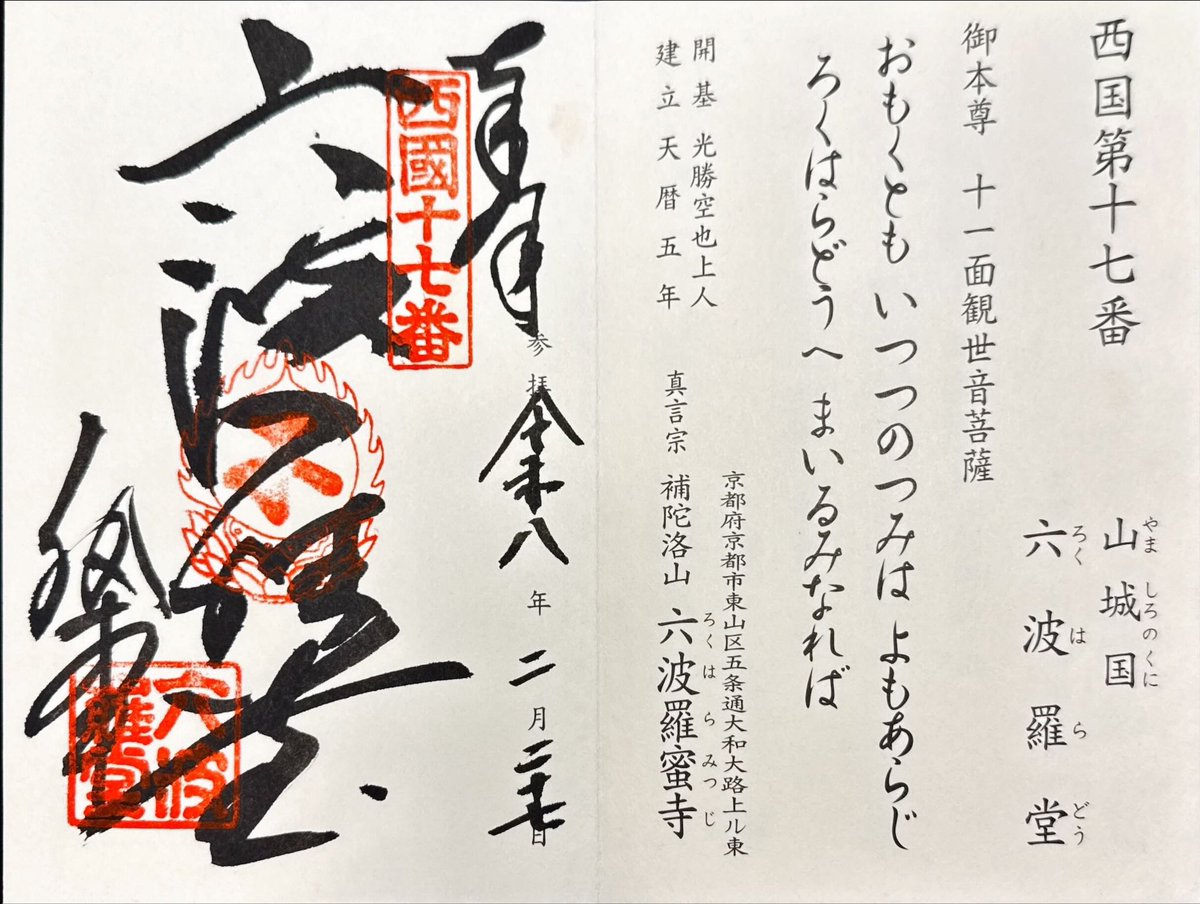 西国第十七番
やましろのくに
山城国
ろくはらどう
六波羅堂
御本尊 十一面観世音菩薩
おもくとも いつつのつみは よもあらじ
ろくはらどうへ まいるみなれば
京都府京都市東山区五条通大和大路上ル東
開基 光勝空也上人
建立 天暦五年
真言宗 補陀洛山 六波羅蜜寺
ろくはらみつじ
奉拝
参拝 令和八年二月二十七日
西國十七番
六波羅堂
六波羅堂